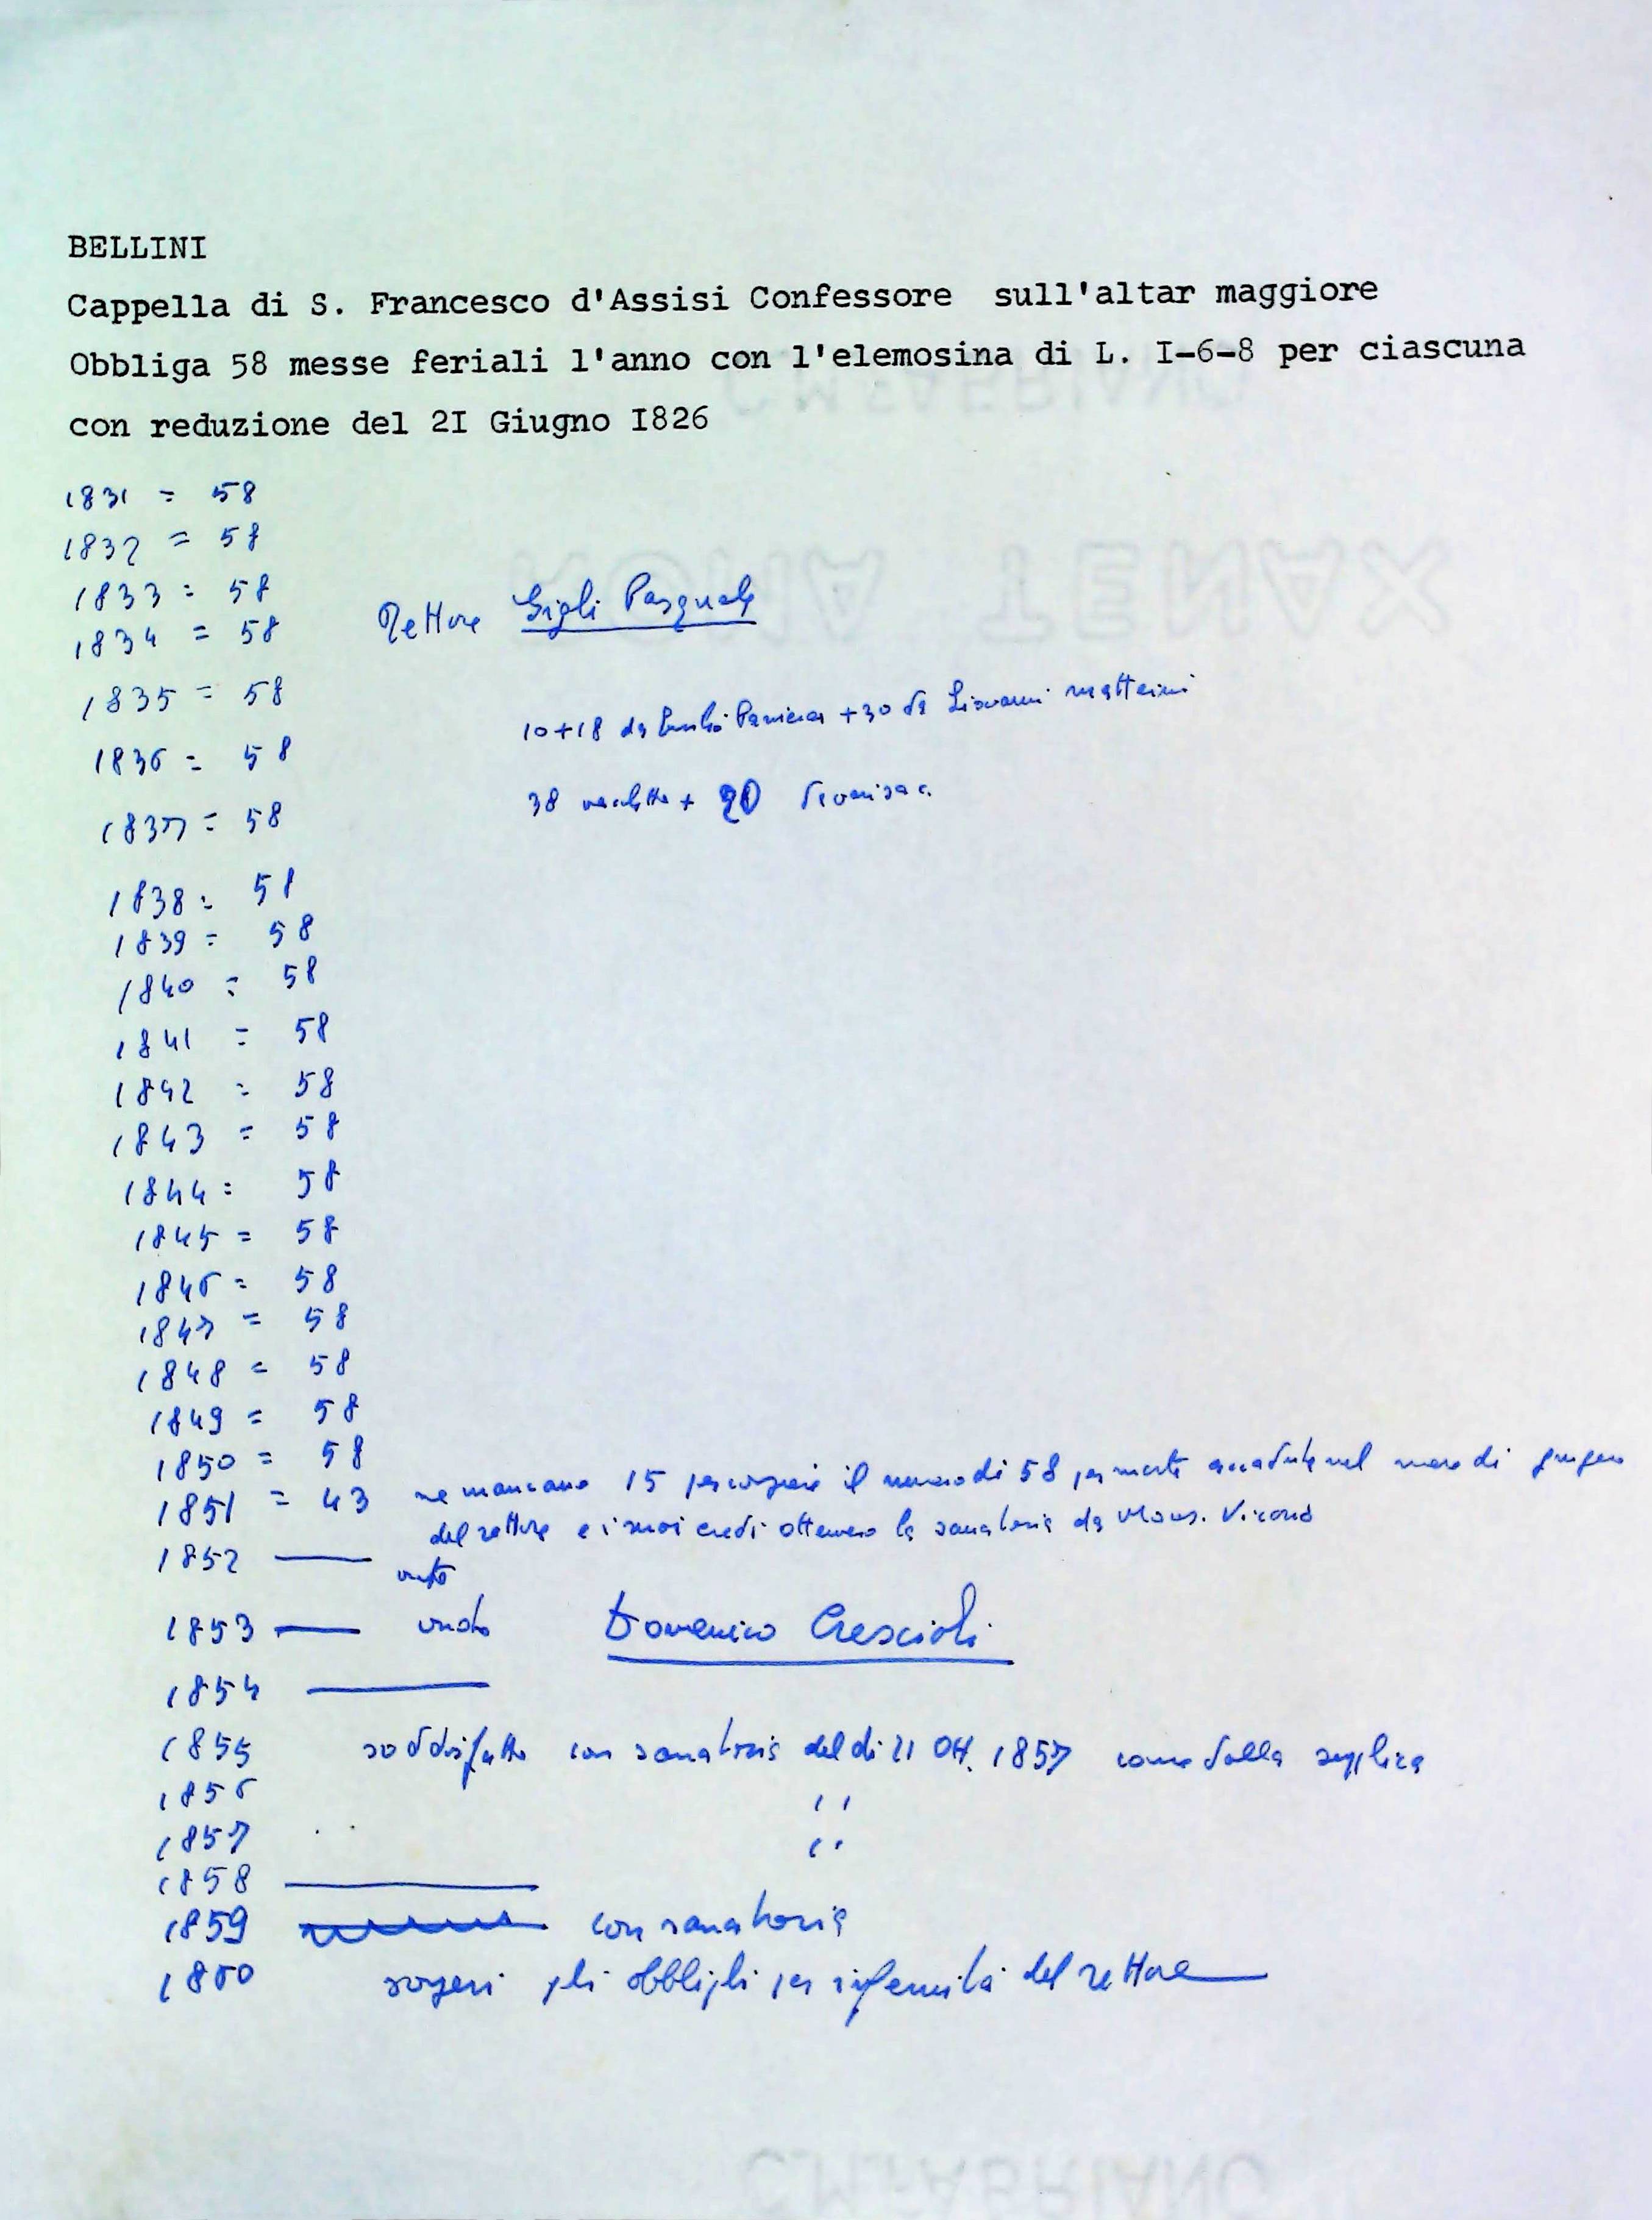 BELLINI
Cappella di S. Francesco d'Assisi Confessore sull'altar maggiore
Obbliga 58 messe feriali l'anno con l'elemosina di L. I-6-8 per ciascuna
con reduzione del 2I Giugno I826
1831 = 58
1832 = 58
1833 = 58
Rettore Gigli Pasquale
1834 = 58
1835 = 58
10+18 da + 30 da Giovanni Matteini
1836 = 58
38 vacchetta + 20
1837 = 58
1838 = 58
1839 = 58
1840 = 58
1841 = 58
1842 = 58
1843 = 58
1844 = 58
1845 = 58
1846 = 58
1847 = 58
1848 = 58
1849 = 58
1850 = 58
1851 = 43 ne mancano 15 per il numero di 58 per morte accaduta nel mese di giugno
del rettore e i suoi eredi ottennero la sanatoria da Mons. Vicario
1852 —— vuoto
1853 —— vuoto Domenico Crescioli
1854 ——
1855 soddisfatto con sanatoria del dì 21 Ott. 1857 come dalla supplica
1856 ''
1857 ''
1858 ——
1859 con sanatoria
1860 sospesi gli obblighi per infermità del rettore
CMFABRIANO
ROMA TENAX
C.M.FABRIANO